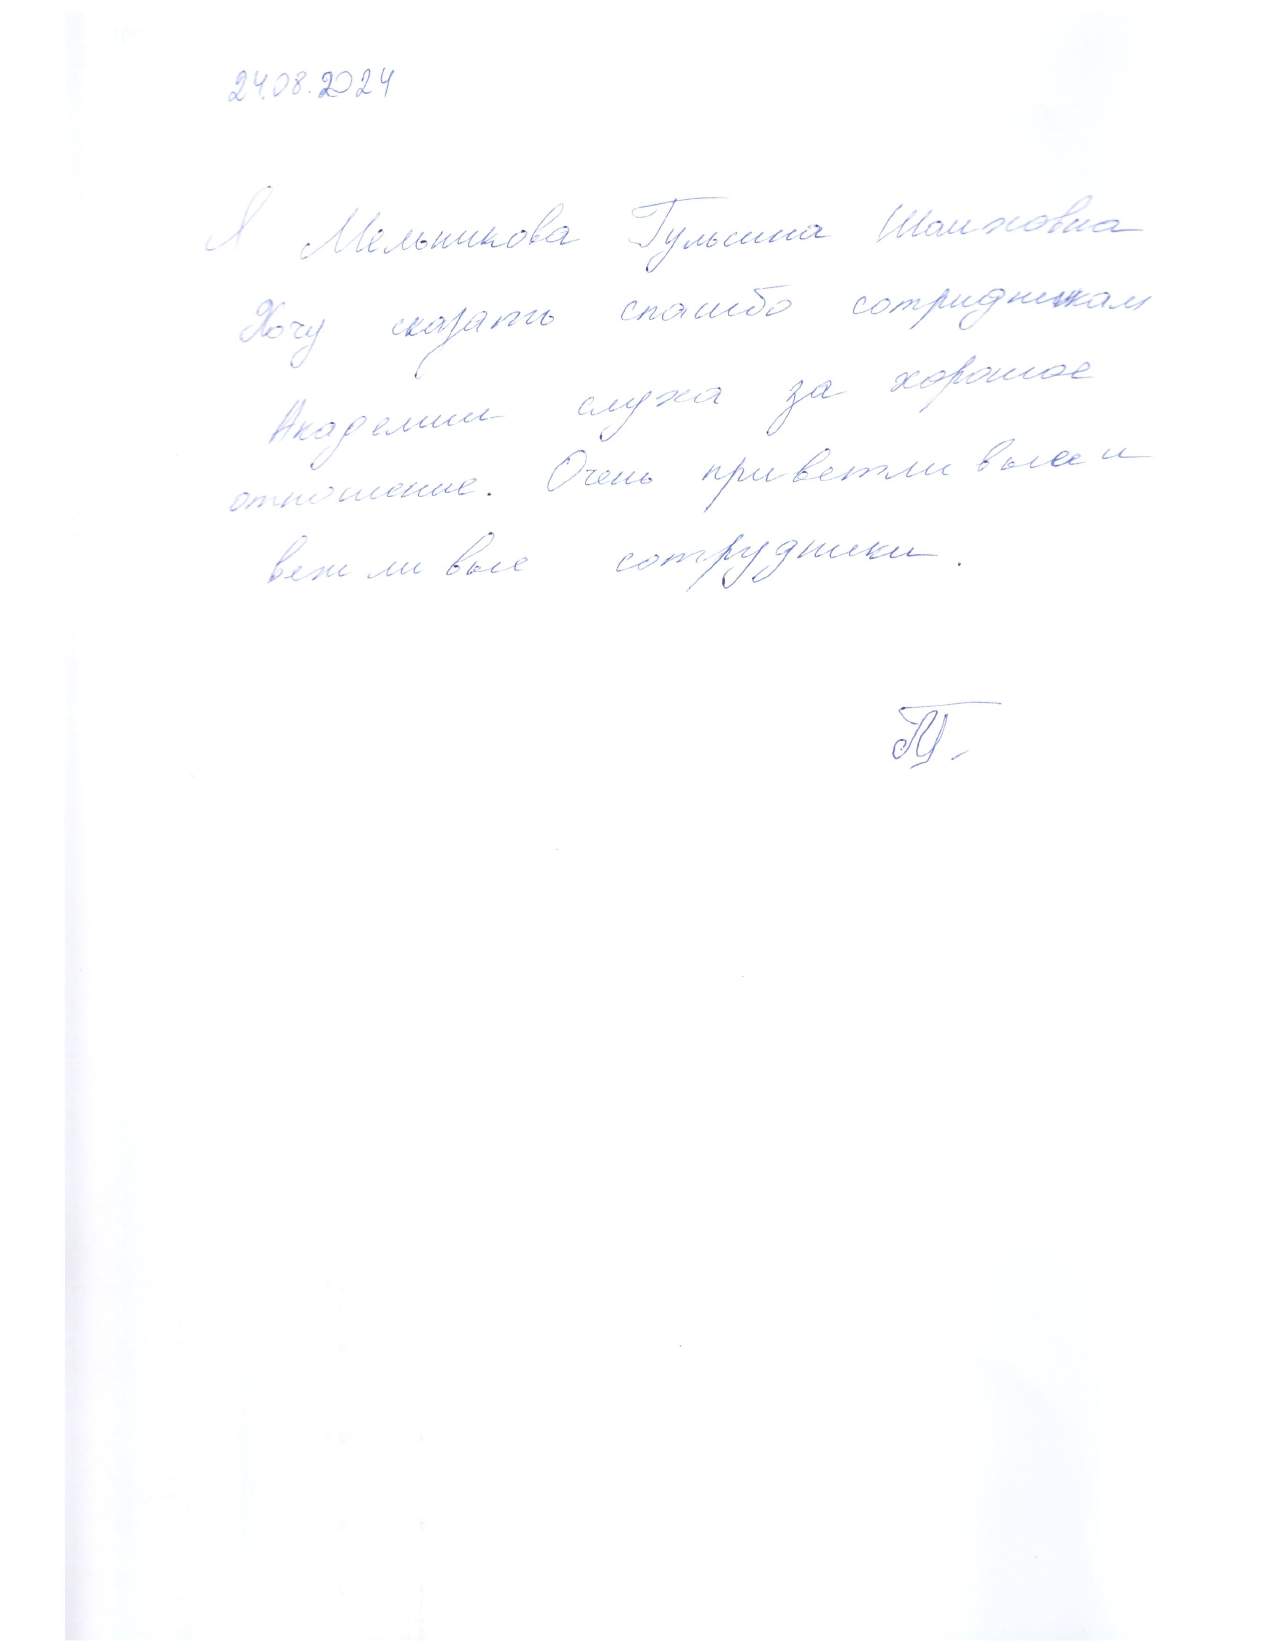 24.08.2024
Я Мельникова Гульсина Шаиховна
Хочу сказать спасибо сотрудникам
Академии слуха за хорошое
отношение. Очень приветливые и
вежливые сотрудники.